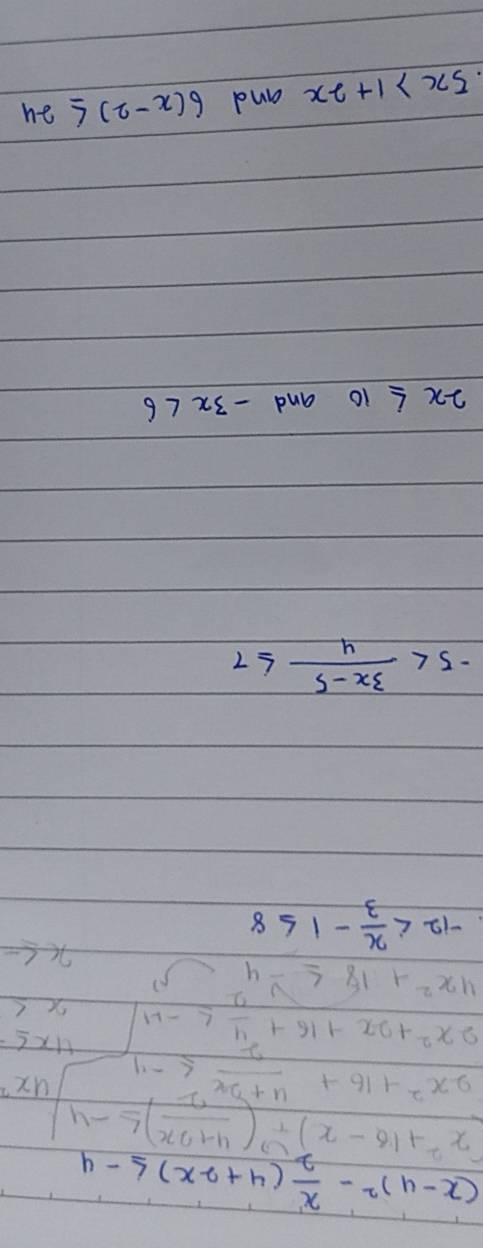 (x-4)² - x/2 (4+2x) ≤ -4
(x²+16-x) + (4+2x/2) ≤ -4
2x²+16+ 4+2x/2 ≤ -4
2x²+2x+16+ 4/2 ≤ -4
4x²+18 ≤ -4
4x²
4x ≤ -
x ≤
x ≤ -
-12 < x/3 - 1 ≤ 8
-5 < 3x-5/4 ≤ 7
2x ≤ 10 and -3x < 6
5x > 1+2x and 6(x-2) ≤ 24